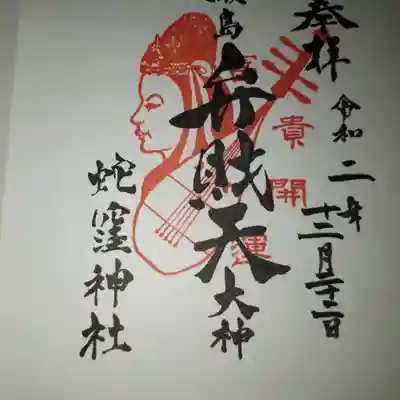 奉拝
令和二年十二月二十二日
貴開運
島
弁財天大神
蛇窪神社